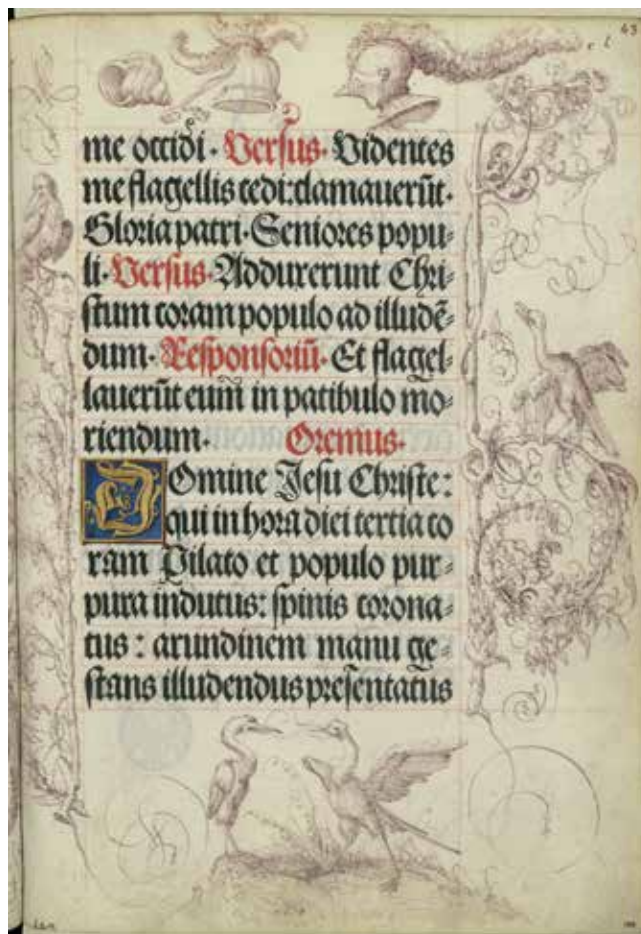 43
me occidi. Versus. Videntes
me flagellis cedi: clamauerūt.
Gloria patri. Seniores popu-
li. Versus. Adduxerunt Chri-
stum coram populo ad illudē-
dum. Responsoriū. Et flagel-
lauerūt eum in patibulo mo-
riendum. Oremus.
Domine Jesu Christe:
qui in hora diei tertia co
ram Pilato et populo pur-
pura indutus: spinis corona-
tus: arundinem manu ge-
stans illudendus presentatus